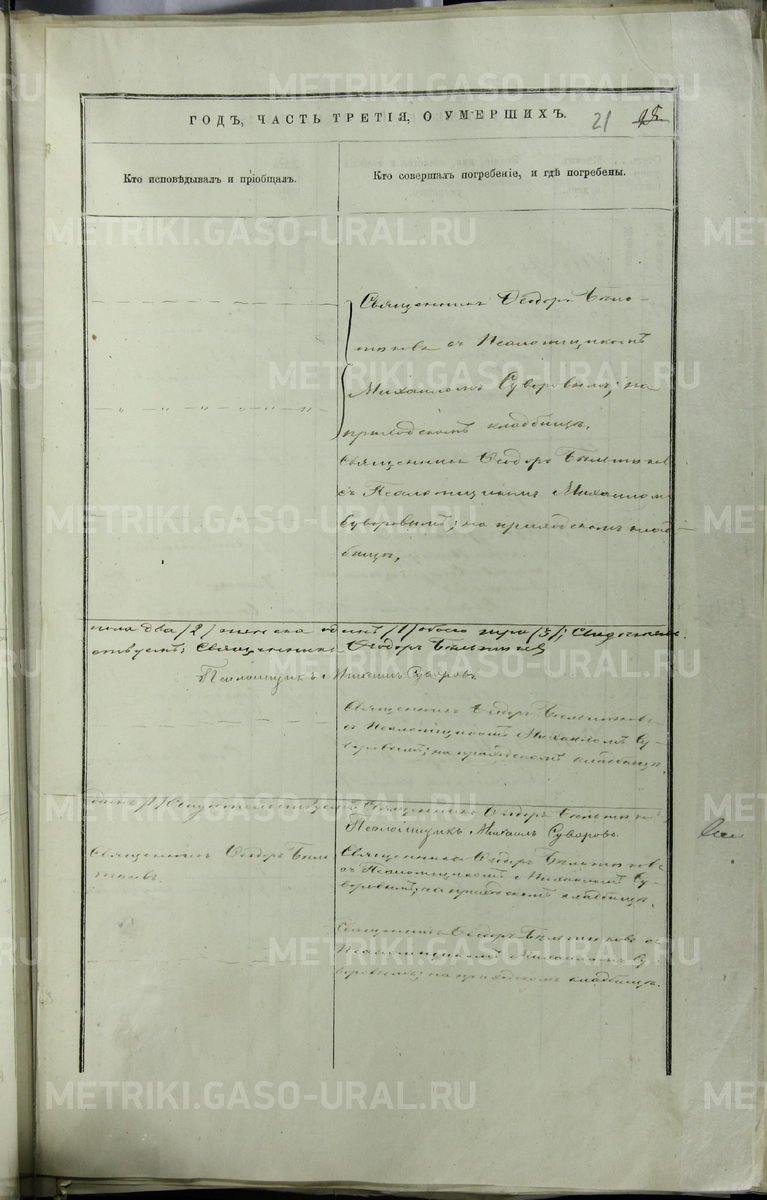 METRIKI.GASO-URAL.RU
ГОДЪ, ЧАСТЬ ТРЕТІЯ, О УМЕРШИХЪ.
21
Кто исповѣдывалъ и пріобщалъ.
Кто совершалъ погребеніе, и гдѣ погребены.
Священникъ Ѳеодоръ
съ Псаломщикомъ
Михаиломъ Суворовымъ; на
приходскомъ кладбищѣ.
Священникъ Ѳеодоръ
съ Псаломщикомъ Михаиломъ
Суворовымъ; на приходскомъ клад-
бищѣ.
пола два /2/ женска одинъ /1/ обоего три /3/;
Священникъ Ѳеодоръ
Псаломщикъ Михаилъ Суворовъ.
Священникъ Ѳеодоръ
съ Псаломщикомъ Михаиломъ Су-
воровымъ; на приходскомъ кладбищѣ.
Священникъ Ѳеодоръ
Псаломщикъ Михаилъ Суворовъ.
Священникъ Ѳеодоръ
Священникъ Ѳеодоръ
съ Псаломщикомъ Михаиломъ Су-
воровымъ; на приходскомъ кладбищѣ.
Священникъ Ѳеодоръ
Псаломщикомъ Михаиломъ Су-
воровымъ; на приходскомъ кладбищѣ.